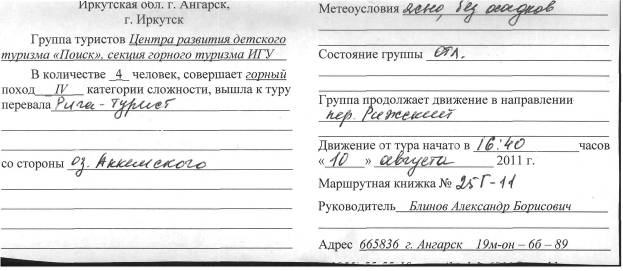 Иркутская обл. г. Ангарск,
г. Иркутск
Группа туристов Центра развития детского
туризма «Поиск», секция горного туризма ИГУ
В количестве 4 человек, совершает горный
поход IV категории сложности, вышла к туру
перевала Рига-Турист
со стороны оз. Аккемского
Метеоусловия ясно, без осадков
Состояние группы отл.
Группа продолжает движение в направлении
пер. Рижский
Движение от тура начато в 16:40 часов
« 10 » августа 2011 г.
Маршрутная книжка № 25Г-11
Руководитель Блинов Александр Борисович
Адрес 665836 г. Ангарск 19м-он – 6б – 89